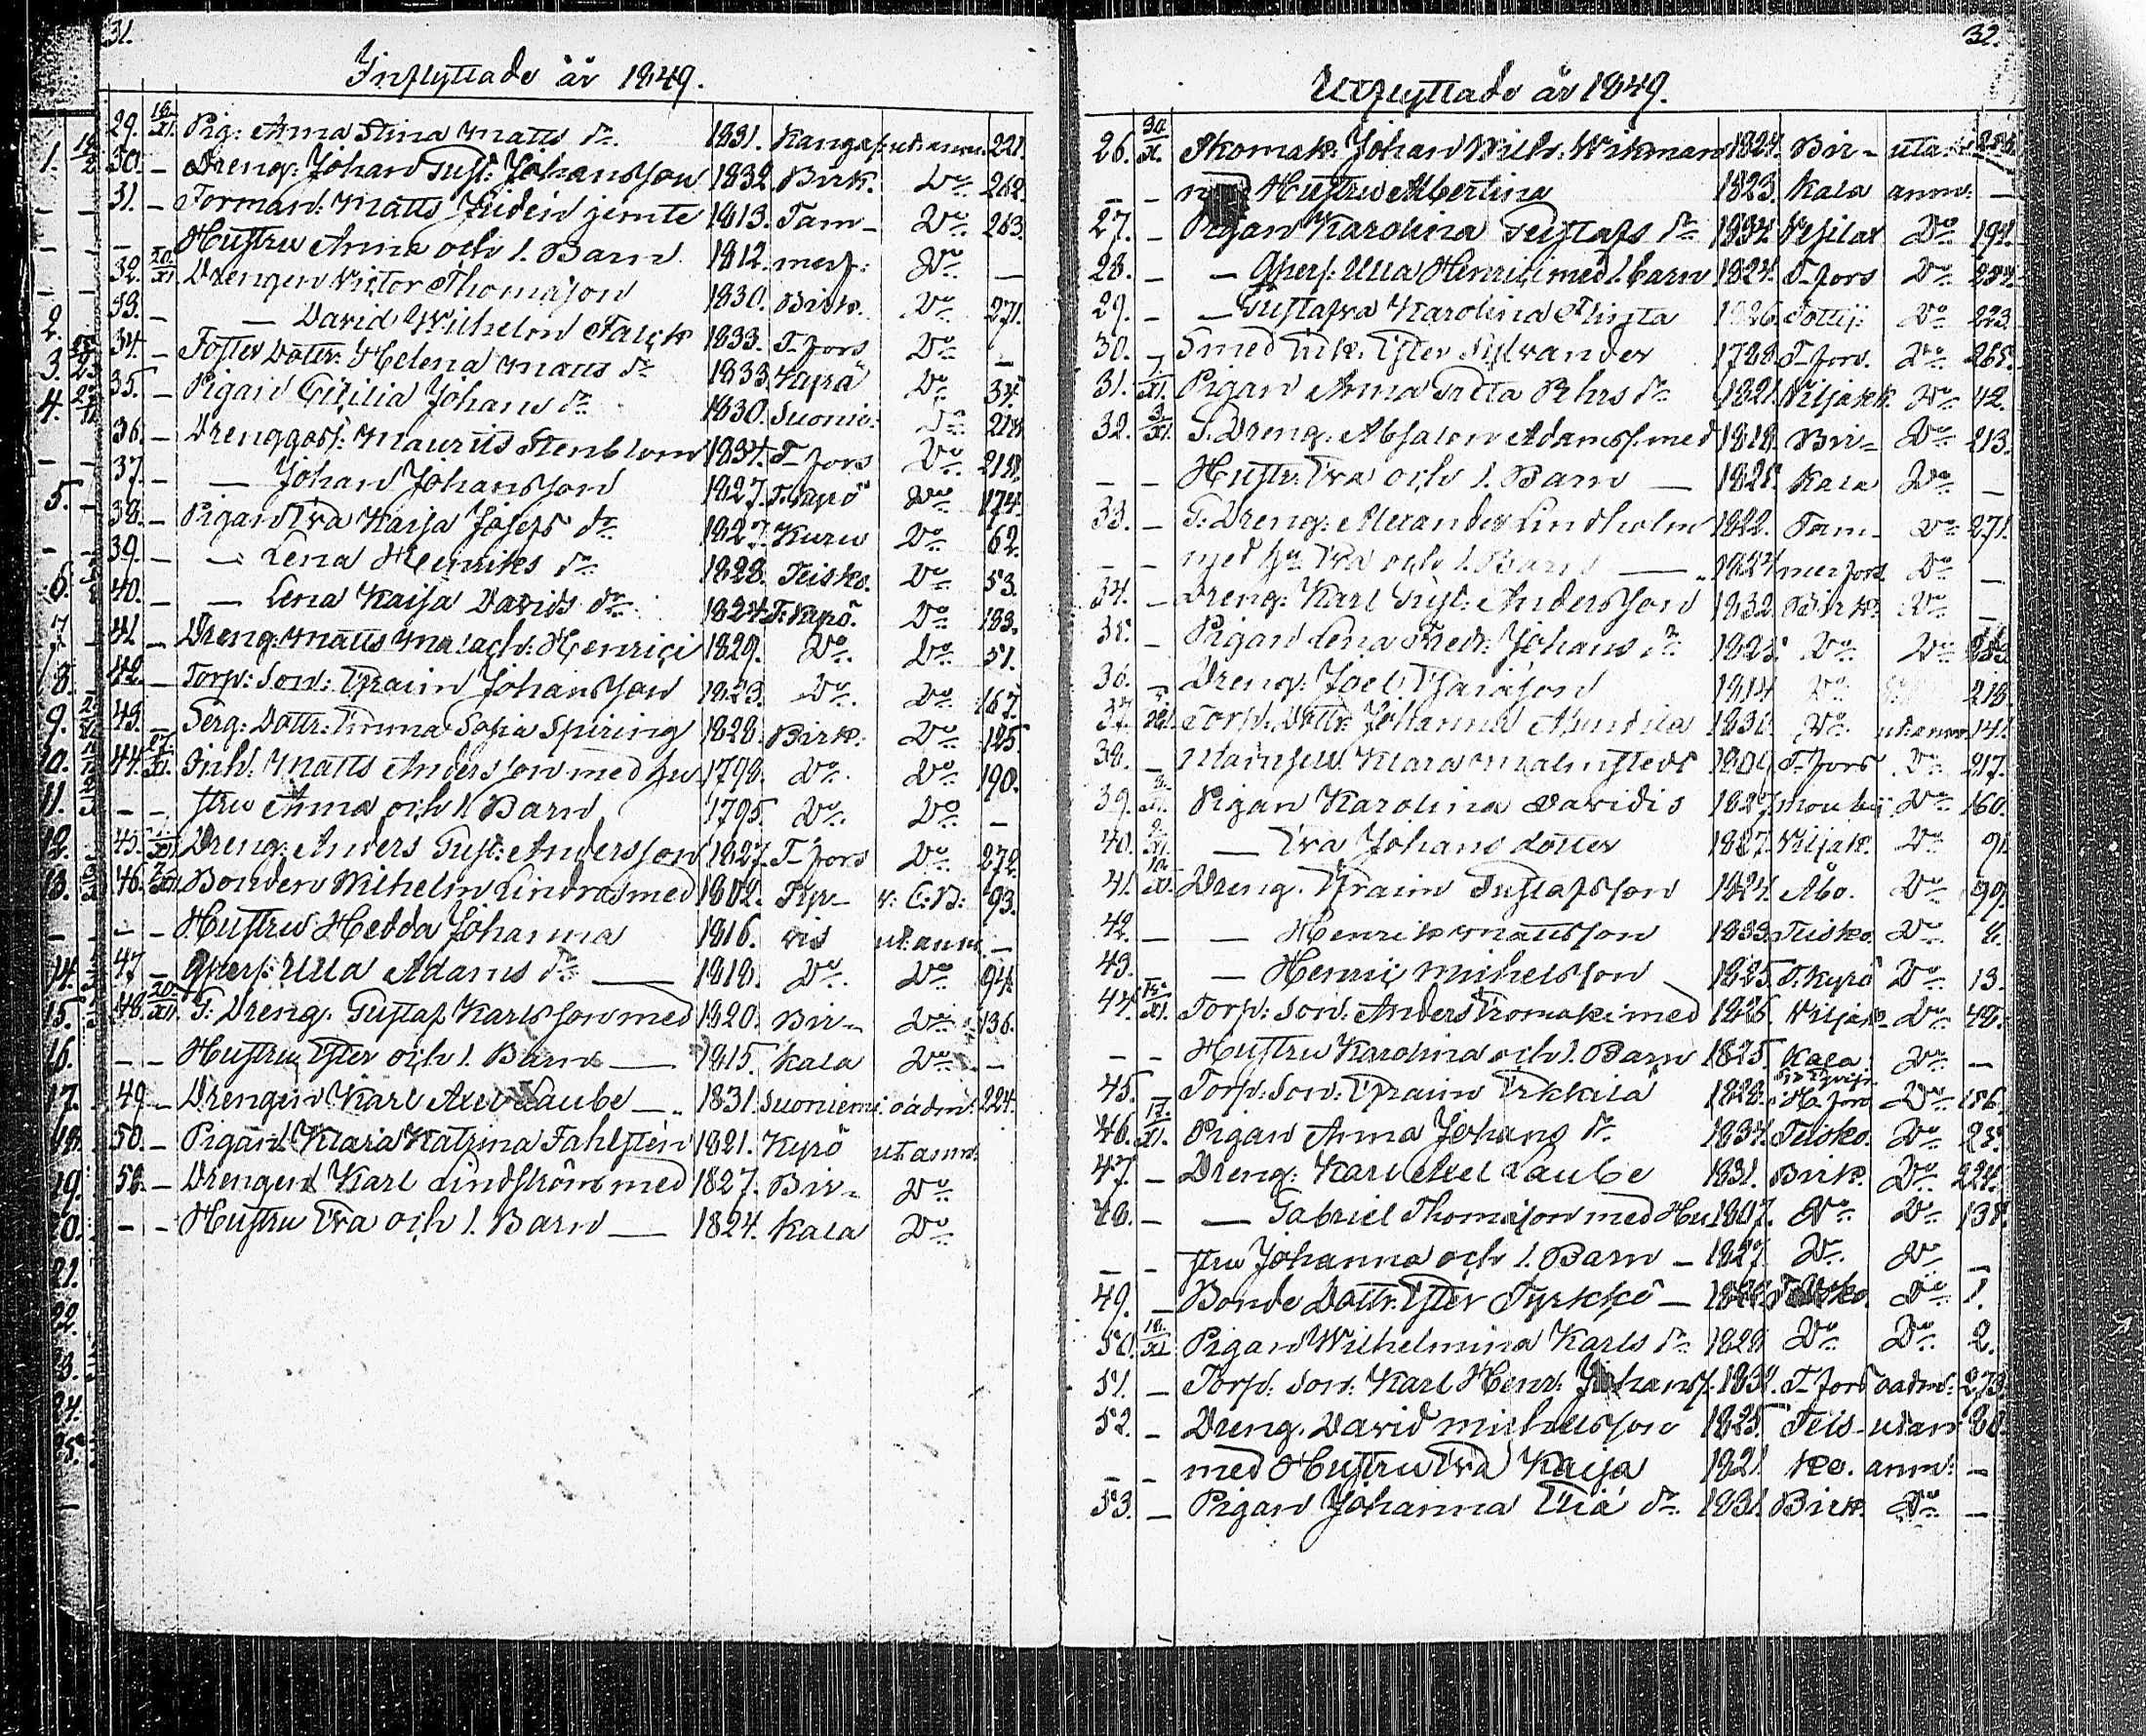 31.
Inflyttade år 1849.
29. 18/XI. Pig: Anna Stina Matts dr. 1831. Kangas. ut: anm. 221.
30. – Dreng: Johan Gust: Johansson 1832. Birk. Do 262.
31. – Forman: Matts Judin jemte 1813. Tam- Do 263.
– Hustru Anna och 1. Barn 1812. merf: Do –
32. 20/XI. Drengen Victor Thomasson 1830. Birk. Do 271.
33. – – David Wilhelm Falck 1833. T-fors Do –
34. – Foster Dottr: Helena Matts dr. 1833. Kyrö Do 34.
35. – Pigan Cicilia Johans dr. 1830. Suonie: Do
36. – Drenggoss: Mauritz Stenblom 1834. T-fors Do 218.
37. – – Johan Johansson 1827. T:Kyrö Do 174.
38. – Pigan Eva Kaisa Josefs dr. 1827. Kuru Do 62.
39. – – Lena Henriks dr. 1828. Teisko. Do 53.
40. – – Lena Kaisa Davids dr. 1824. T:Kyrö. Do 183.
41. – Dreng: Matts Malach: Henrici 1829. Do Do 51.
42. – Torp: Son: Efraim Johansson 1823. Do Do 167.
43. – Serg: Dottr: Emma Sofia Spiring 1828. Birk: Do 125
44. 27/XI. Inh: Matts Andersson med hu 1798. Do Do 190.
– – stru Anna och 1. Barn 1795. Do Do –
45. /XII. Dreng: Anders Gust: Andersson 1827. T-fors Do 272.
46. /XII. Bonden Wilhelm Lindroos med 1802. Tyr- v: C:B: 93.
– – Hustru Hedda Johanna 1816. vis ut: anm. –
47. – Qpers: Ulla Adams dr. — 1818. Do Do 94.
48. 20/XII. G: Dreng. Gustaf Karlsson med 1820. Bir- Do 136.
– – Hustru Ester och 1. Barn — 1815. kala Do –
49. – Drengen Karl Axel Laube —. 1831. Suoniemi oadm: 224.
50. – Pigan Klara Katrina Fahlstén 1821. Kyrö ut anm.
52. – Drengen Karl Lindström med 1827. Bir- Do
– – Hustru Eva och 1. Barn — 1824. kala Do
32.
Utflyttade år 1849.
26. 30/X. Skomak: Johan Wilh: Wikman 1824. Bir- utan
– – Hustru Albertina 1823. kala anm: –
27. – Pigan Karolina Gustafs dr. 1834. Vesilax Do 192.
28. – – Qpers: Ulla Henrici med 1. barn 1824. T-fors Do 234.
29. – – Gustafva Karolina Flinta 1826. Tottij: Do 223.
30. – Smed Enk: Ester Sylvander 1788. T-fors. Do 265.
31. /XI. Pigan Anna Greta Pehrs dr. 1821. Viljakk. Do 42.
32. 3/XI. G. Dreng: Absalon Adamss. med 1818. Bir- Do 213.
– – Hustr: Eva och 1. Barn — 1821. kala Do –
33. – G: Dreng: Alexander Lindholm 1822. Tam- Do 271.
– – med hu: Eva och 1. Barn —. 1824. merfors Do –
34. – Dreng: Karl Gust: Andersson 1832. Birk: Do –
35. – Pigan Lena Fredr: Johans dr. 1825. Do Do
36. – Dreng: Joel Esaiasson 1814. Do 218.
37. Torp: Dottr: Johanna 1831. Do ut:anm. 141.
38. – Mamsell Klara Malmstedt T-fors Do 217.
39. /XI. Pigan Karolina Davidis 1827. Do 160.
40. 9/XI. – Eva Johans dotter 1827. Viljak. Do 91.
41. 10/XI. Dreng. Efraim Gustafsson 1824. Åbo. Do 99.
42. – – Henrik Mattsson 1833. Teisko. Do 8.
43. – Henric Michelsson 1825. T:Kyrö Do 13.
44. /XI. Torp: Son: Anders Kromaki med 1826. Viljak- Do 48.
– – Hustru Karolina och 1. Barn 1825. kala Do –
45. Torp: Son: Efraim Erkkilä 1828. Do 186.
46. 17/XI. Pigan Anna Johans dr. 1834. Teisko. Do 25.
47. – Dreng: Karl Axel Laube 1831. Birk. Do 224.
48. – – Gabriel Thomasson med Hu 1807. Do Do 138.
– – stru Johanna och 1. Barn – 1827. Do Do –
49. – Bonde Dottr: Ester Tyrkkö – Teisko. Do 1.
50. 18/XI. Pigan Wilhelmina Karls dr. 1829. Do Do 2.
51. – Torp: Son: Karl Henr: Johanss. 1831. T-fors oadm: 273.
52. – Dreng. David Michelsson 1825. Teis- utan 30.
– – med Hustru Eva Kaisa 1821. ko. anm: –
53. – Pigan Johanna Eliæ dr. 1831. Birk. Do –